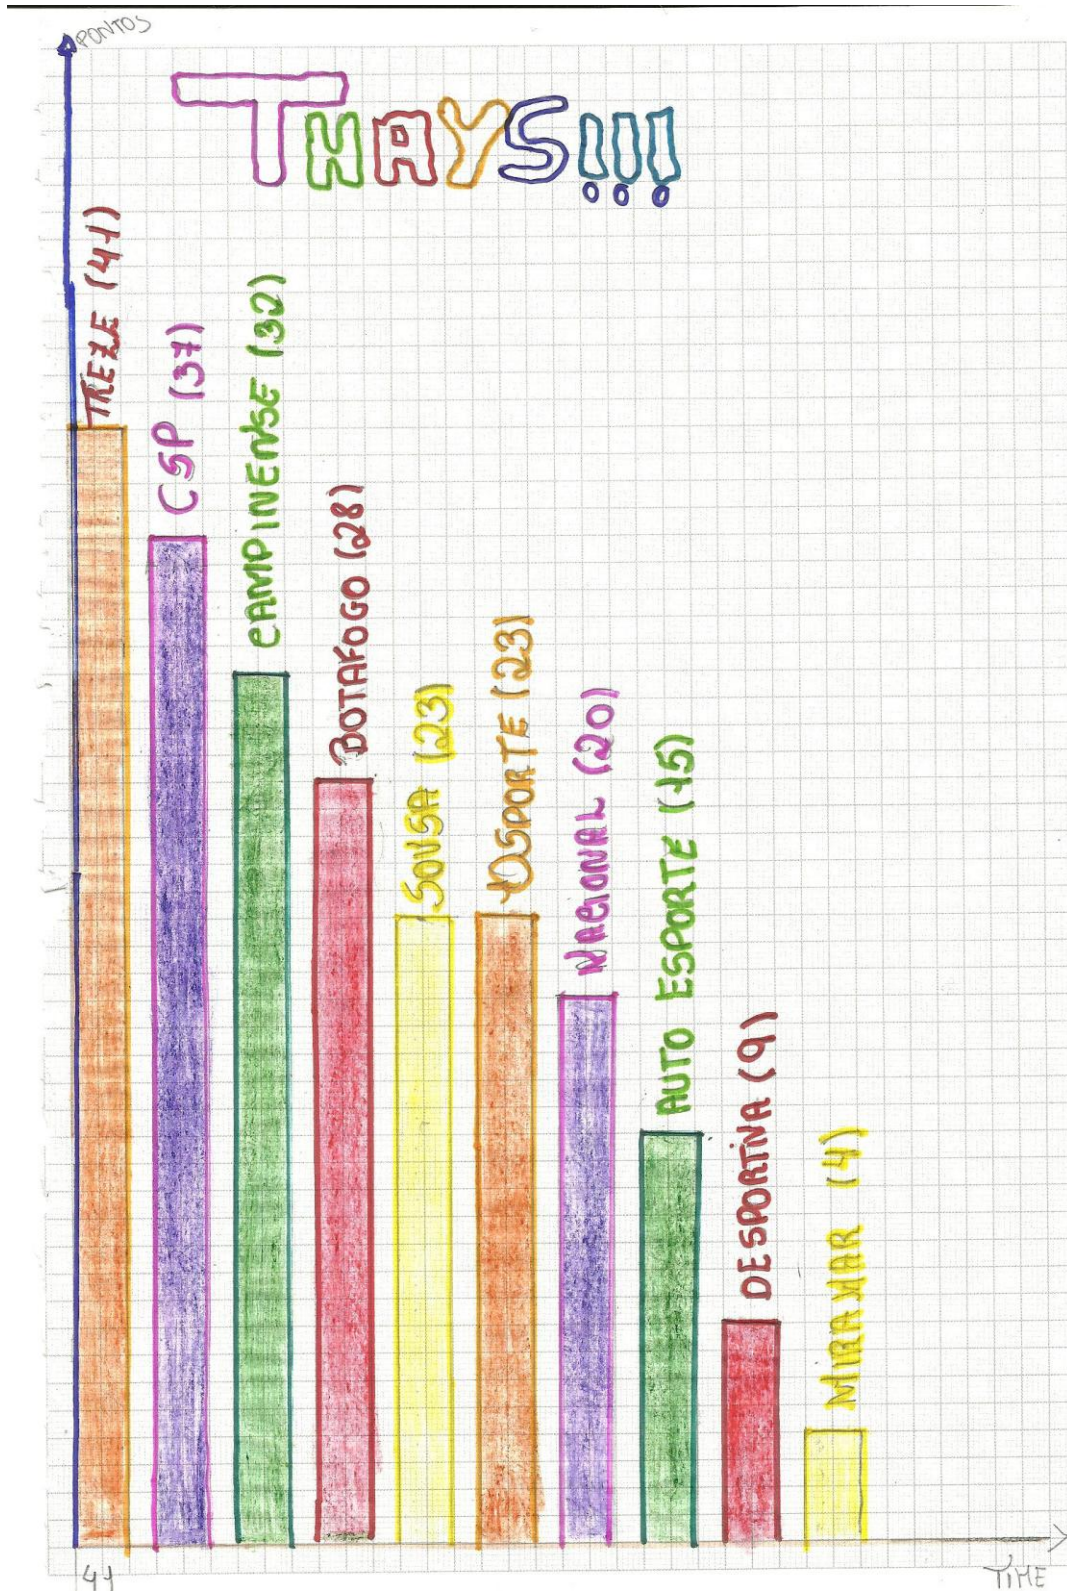 PONTOS
THAYS!!!
TREZE (41)
CSP (37)
CAMPINENSE (32)
BOTAFOGO (28)
SOUSA (23)
ESPORTE (23)
NACIONAL (20)
AUTO ESPORTE (15)
DESPORTIVA (9)
MIRAMAR (4)
41
TIME